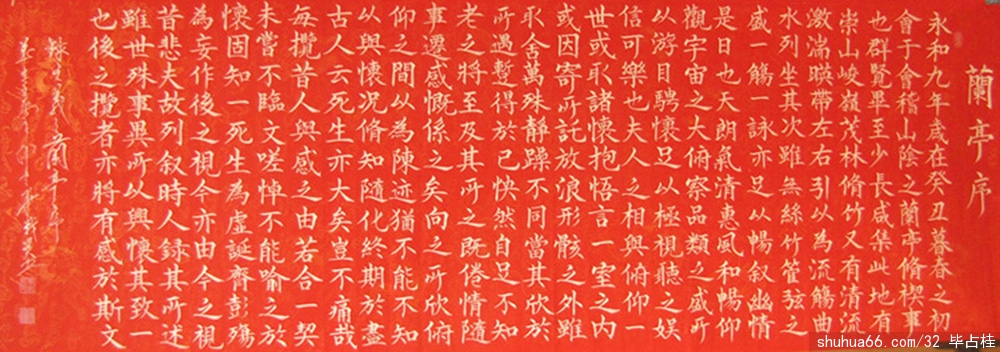 蘭亭序
永和九年歲在癸丑暮春之初
會于會稽山陰之蘭亭脩稧事
也群賢畢至少長咸集此地有
崇山峻嶺茂林脩竹又有清流
激湍暎帶左右引以為流觴曲
水列坐其次雖無絲竹管弦之
盛一觴一詠亦足以暢叙幽情
是日也天朗氣清惠風和暢仰
觀宇宙之大俯察品類之盛所
以游目騁懷足以極視聽之娛
信可樂也夫人之相與俯仰一
世或取諸懷抱悟言一室之内
或因寄所託放浪形骸之外雖
取舍萬殊静躁不同當其欣於
所遇暫得於己快然自足不知
老之將至及其所之既倦情隨
事遷感慨係之矣向之所欣俯
仰之間以為陳迹猶不能不知
以興懷况脩短隨化終期於盡
古人云死生亦大矣豈不痛哉
每攬昔人興感之由若合一契
未嘗不臨文嗟悼不能喻之於
懷固知一死生為虛誕齊彭殤
為妄作後之視今亦由今之視
昔悲夫故列叙時人録其所述
雖世殊事異所以興懷其致一
也後之攬者亦將有感於斯文
蘭亭序
shuhua66.com/32 毕占桂